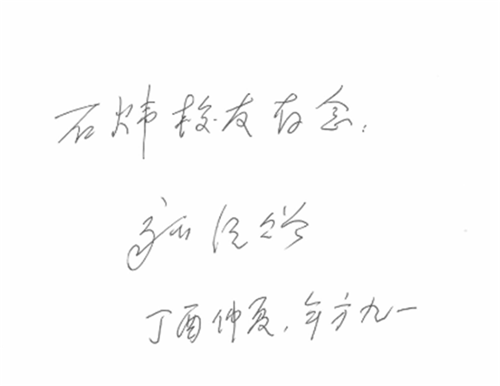 石炜校友存念:
丁酉仲夏，年方九一